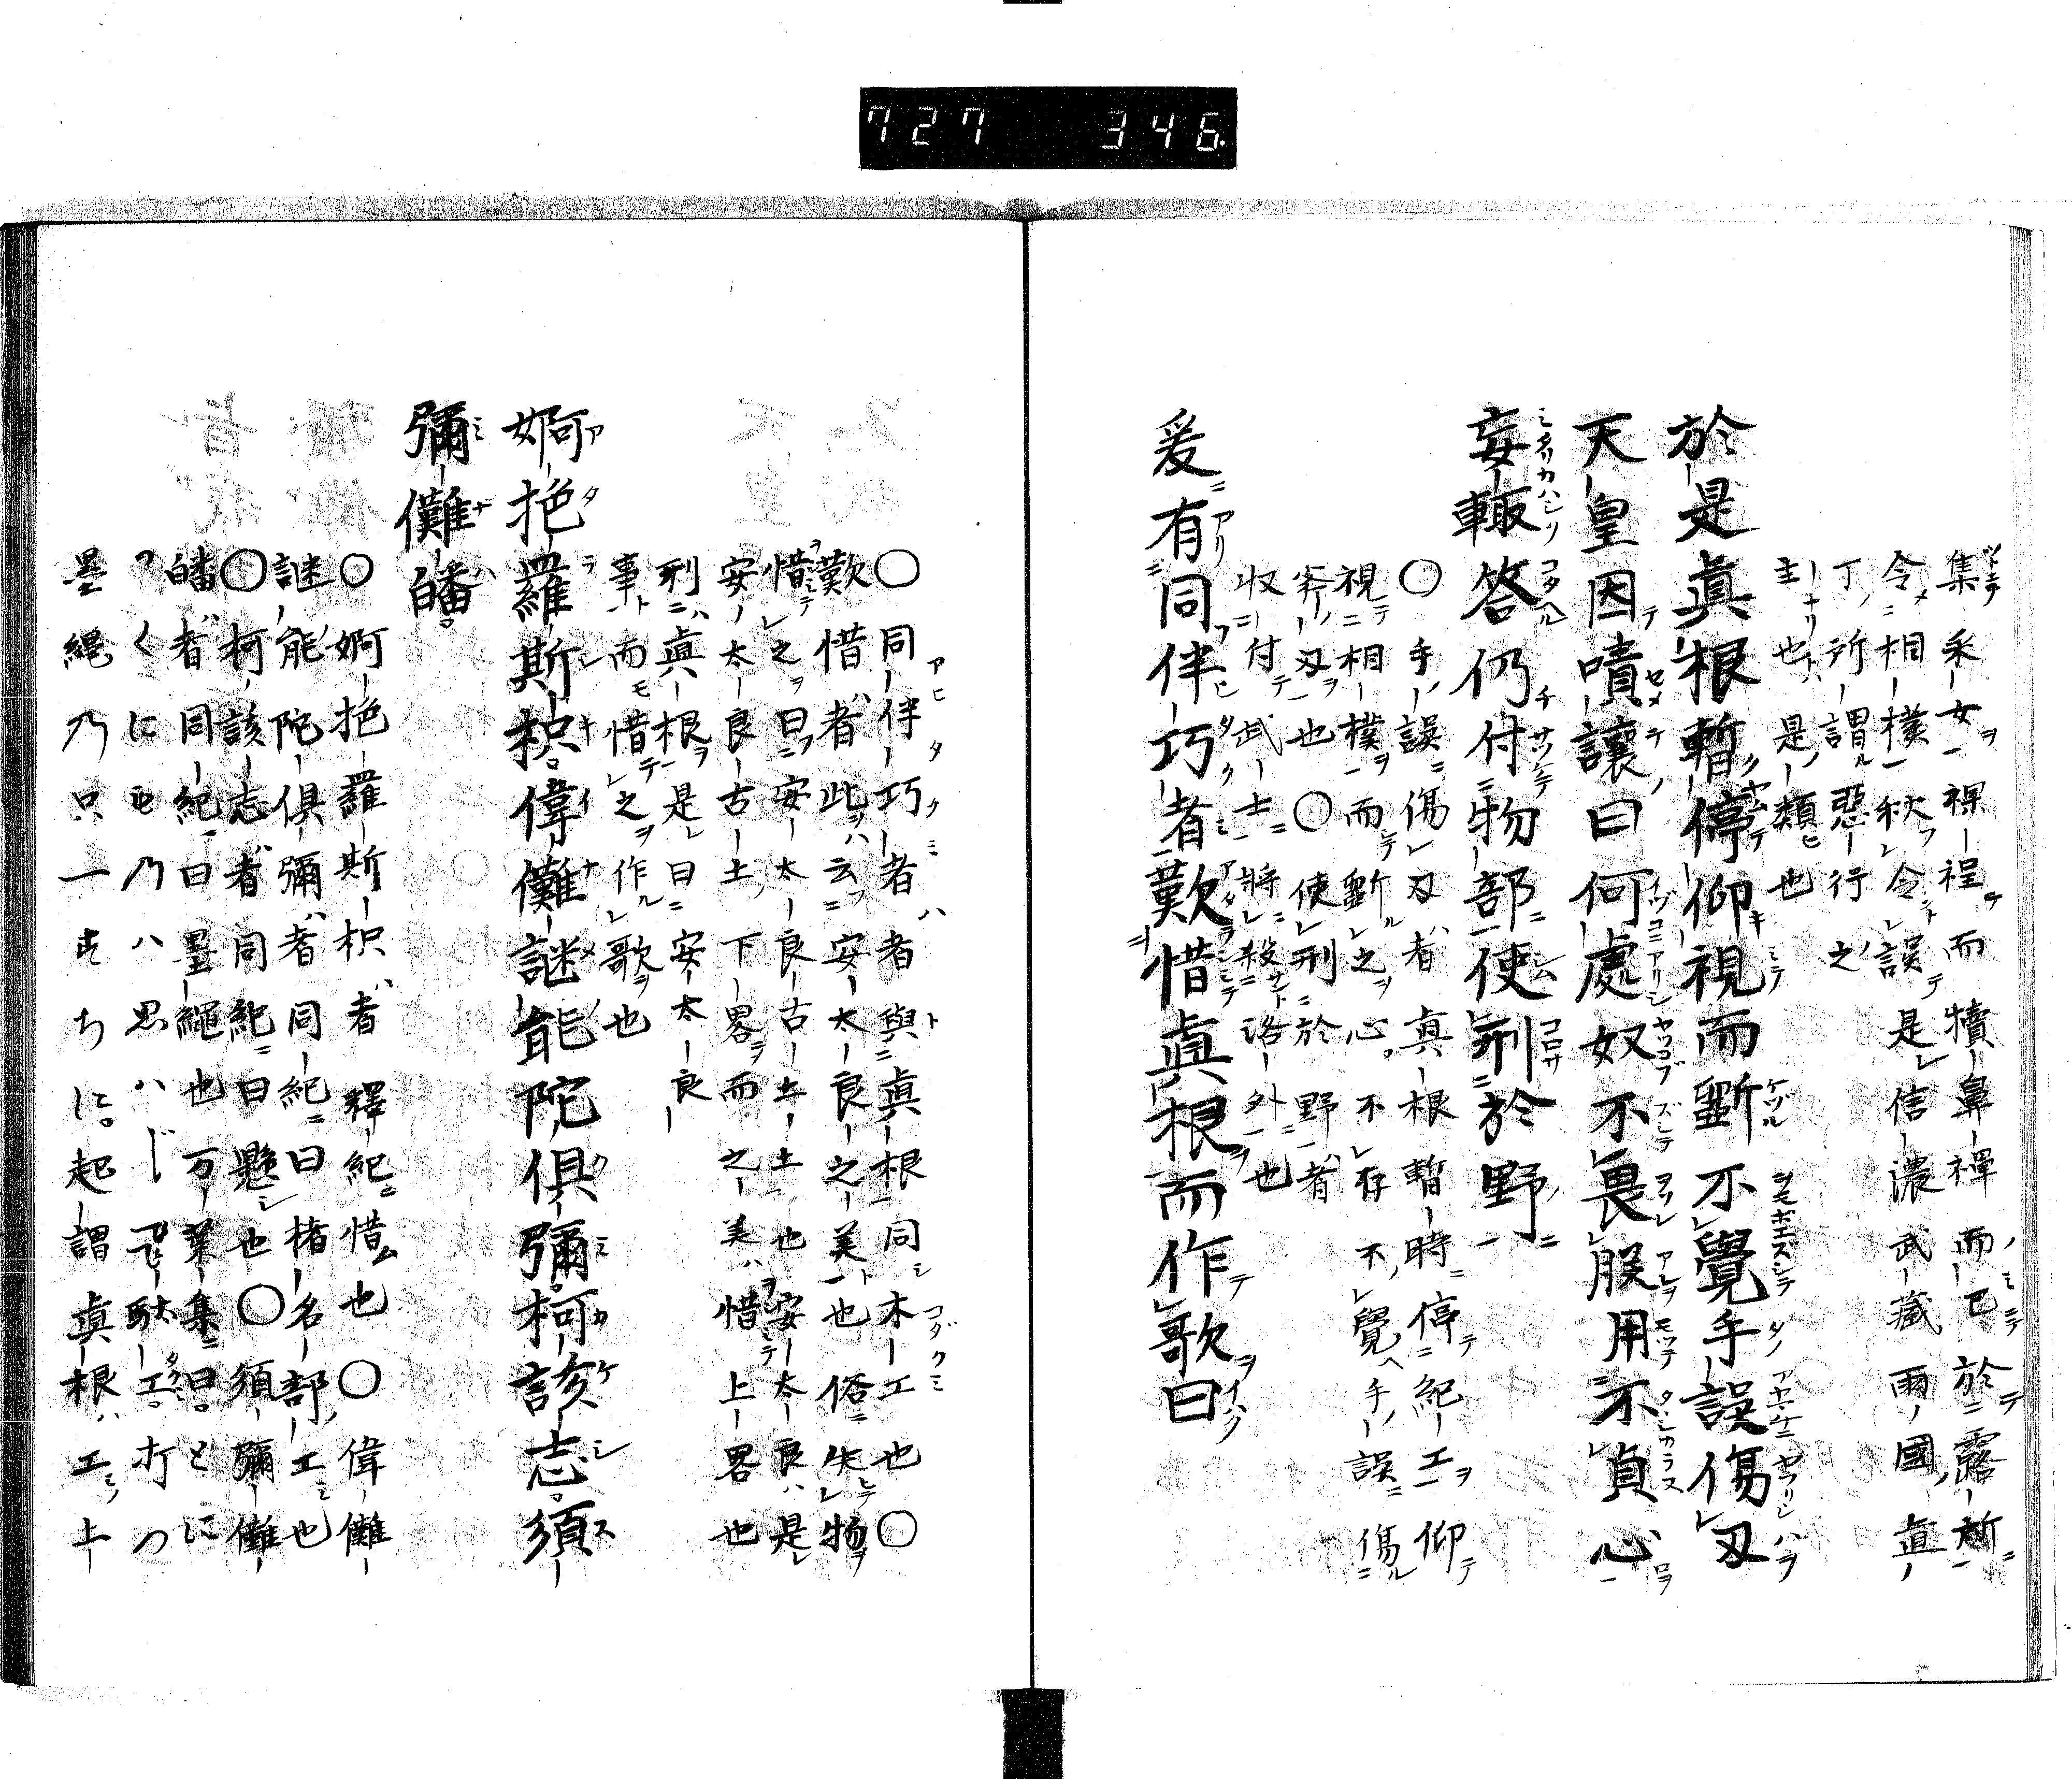 727 346
集采女裸裎而犢鼻褌而已於露所
令相樸秋令誤是信濃武蔵兩國真
丁所謂惡行之
主也是類也
於是眞根暫停仰視而斲不覺手誤傷刃
天皇因嘖讓曰何處奴不畏朕用不貞心
妄輙答仍付物部使刑於野
○手誤傷刃者真根暫時停紀工仰
視相樸而斲之心不存不覺手誤傷
斧刃也○使刑於野者
収付武士將殺洛外也
爰有同伴巧者歎惜眞根而作歌曰
○同伴巧者者與眞根同木工也○
歎惜者此云安太良之美也俗失物
惜之曰安太良古土土也安太良是
安太良古土下畧而之美惜上畧也
刑眞根是曰安太良
事而惜之作歌也
婀拕羅斯枳偉儺謎能陀倶彌柯該志須
彌儺皤
○婀拕羅斯枳者釋紀惜也○偉儺
謎能陀倶彌者同紀曰楮名部工也
○柯該志者同紀曰懸也○須彌儺
皤者同紀曰墨繩也万葉集曰とに
つくにも乃ハ思ハじ駄工打つ
墨縄乃只一すちに起謂眞根工上